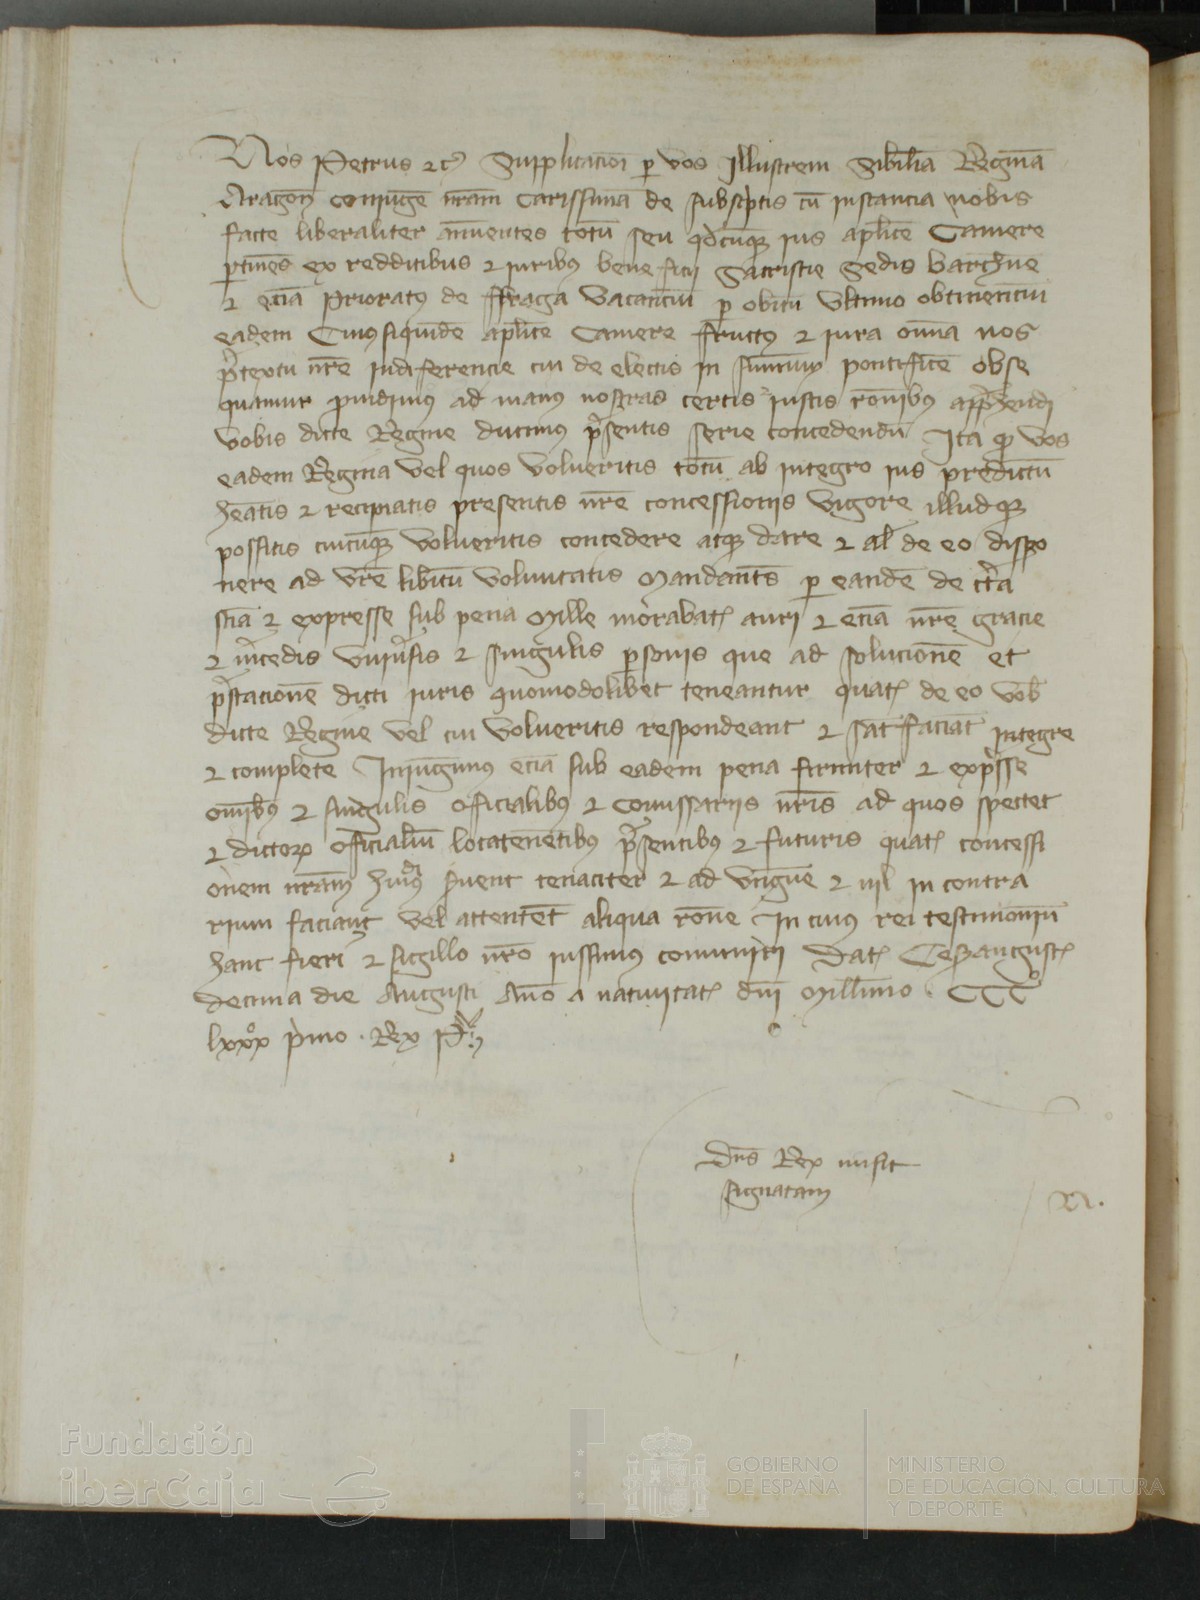 Nos Petrus etc̃ Supplicacioī ꝑ vos Illustrem Sibiliā Regināꝫ
Aragoñ coniugē nr̃am Carissimā de subscͥptis cū instancia nobis
facte liberaliter annuentes totū seu qͦdcūqꝫ ius aplice Camere
ꝑtinēs ex redditibus ⁊ iuribus beneficij Sacristie Sedis barchñe
⁊ eciā Prioratꝰ de ffraga vacanciū ꝑ obitū vltimo obtinenciū
eadem Cuiusſiquidē aplice Camere fructꝰ ⁊ iura om̃ia nos
p̃textu nr̃e indiferencie cui de electis in summū pontificē obse
quamur ꝓuidimꝰ ad manꝰ nostras certis iustis rōnibꝰ app̃hendi
vobis dicte Regine ducimus p̃sentis serie concedendū Ita qͦ vos
eadem Regina vel quos volueritis totū ab integro ius predictū
h̃eatis ⁊ recipiatis presentis nr̃e concessionis vigore illudqꝫ
possitis cuicūqꝫ volueritis concedere atqꝫ dare ⁊ al̃ de eo dispo
nere ad vr̃e libitū voluntatis Mandantēs ꝑ eandē de cͭta
sciā ⁊ expresse sub pena Mille morabatꝭ auri ⁊ eciā nr̃e gracie
⁊ m̃cedis vniũsis ⁊ singulis ꝑsonis que ad solucionē et
p̃stacionē dicti iuris quomodolibet teneantur quatꝭ de eo vob̃
dicte Regine vel cui volueritis respondeant ⁊ satfaciāt integre
⁊ complete Iniungimus eciā sub eadem pena firmiter ⁊ exp̃sse
om̃ibꝰ ⁊ singulis officialibꝰ ⁊ Comissariis nr̃is ad quos spectet
⁊ dictoꝝ officialiū locatenētibꝰ p̃sentibꝰ ⁊ futuris quatꝭ concessi
onem nr̃am hmōi ẜuent tenaciter ⁊ ad vnguē ⁊ nil in contra
rium faciant vel attentēt aliqua rōne In cuius rei testimoniū
hanc fieri ⁊ sigillo nr̃o iussimus comuniri Datꝭ Cesarauguste
decima die Augusti Anō a natiuitatꝭ dn̄i Millimo CCCͦ
lxxxͦ pͥmo . Rex Pͥ.
Dñs Rex misit
signatam
Fundación
iberCaja
GOBIERNO
DE ESPAÑA
MINISTERIO
DE EDUCACIÓN, CULTURA
Y DEPORTE